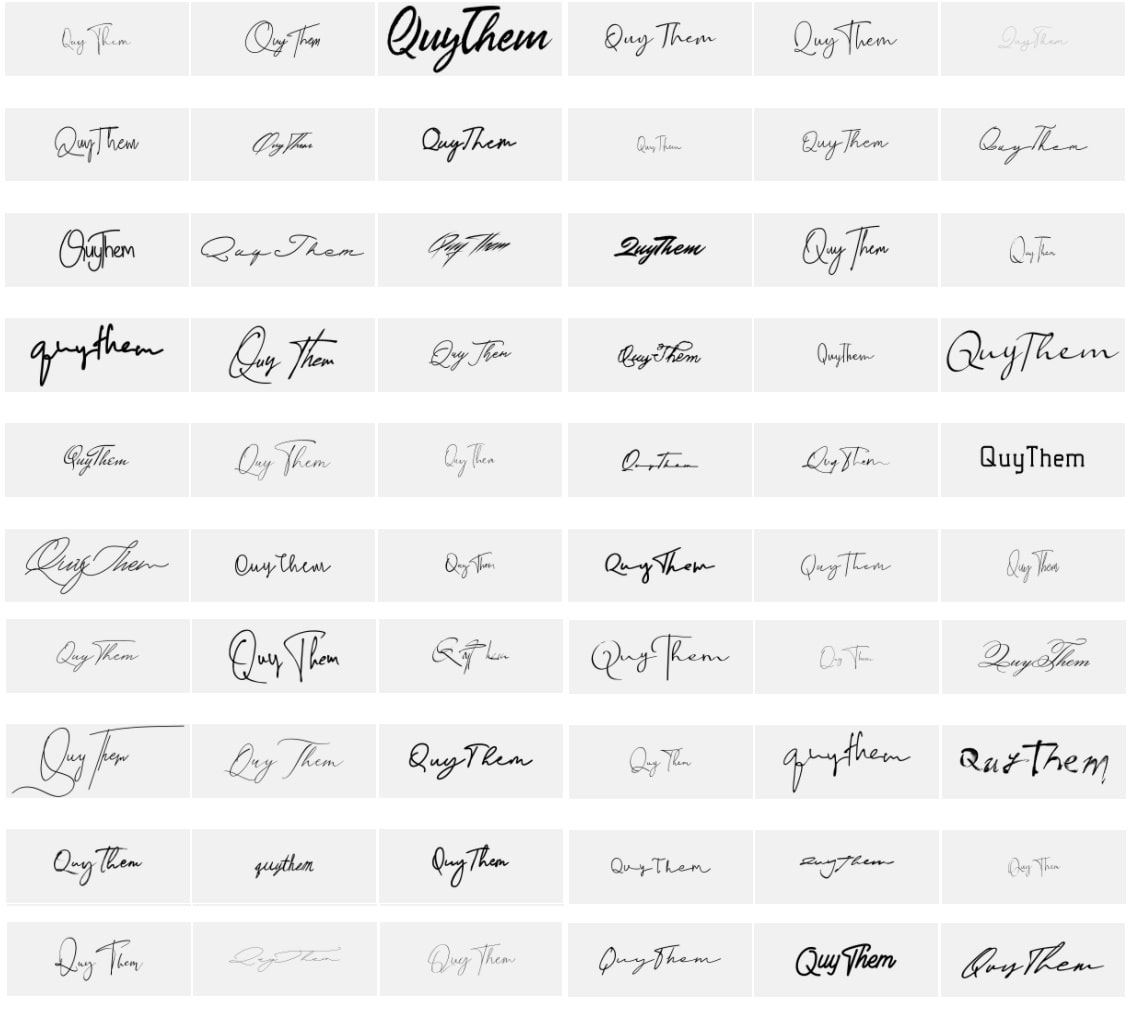 Quy Them Quy Them QuyThem Quy Them Quy Them QuyThem
QuyThem QuyThem QuyThem QuyThem QuyThem QuyThem
QuyThem Quy Them Quy Them QuyThem Quy Them Quy Them
quythem Quy Them Quy Them QuyThem QuyThem QuyThem
QuyThem Quy Them Quy Them QuyThem QuyThem QuyThem
QuyThem Quy Them Quy Them QuyThem QuyThem QuyThem
QuyThem Quy Them Quy Them QuyThem Quy Them QuyThem
Quy Them Quy Them QuyThem Quy Them quythem QuyThem
Quy Them quythem Quy Them QuyThem quythem Quy Them
Quy Them QuyThem Quy Them QuyThem QuyThem QuyThem